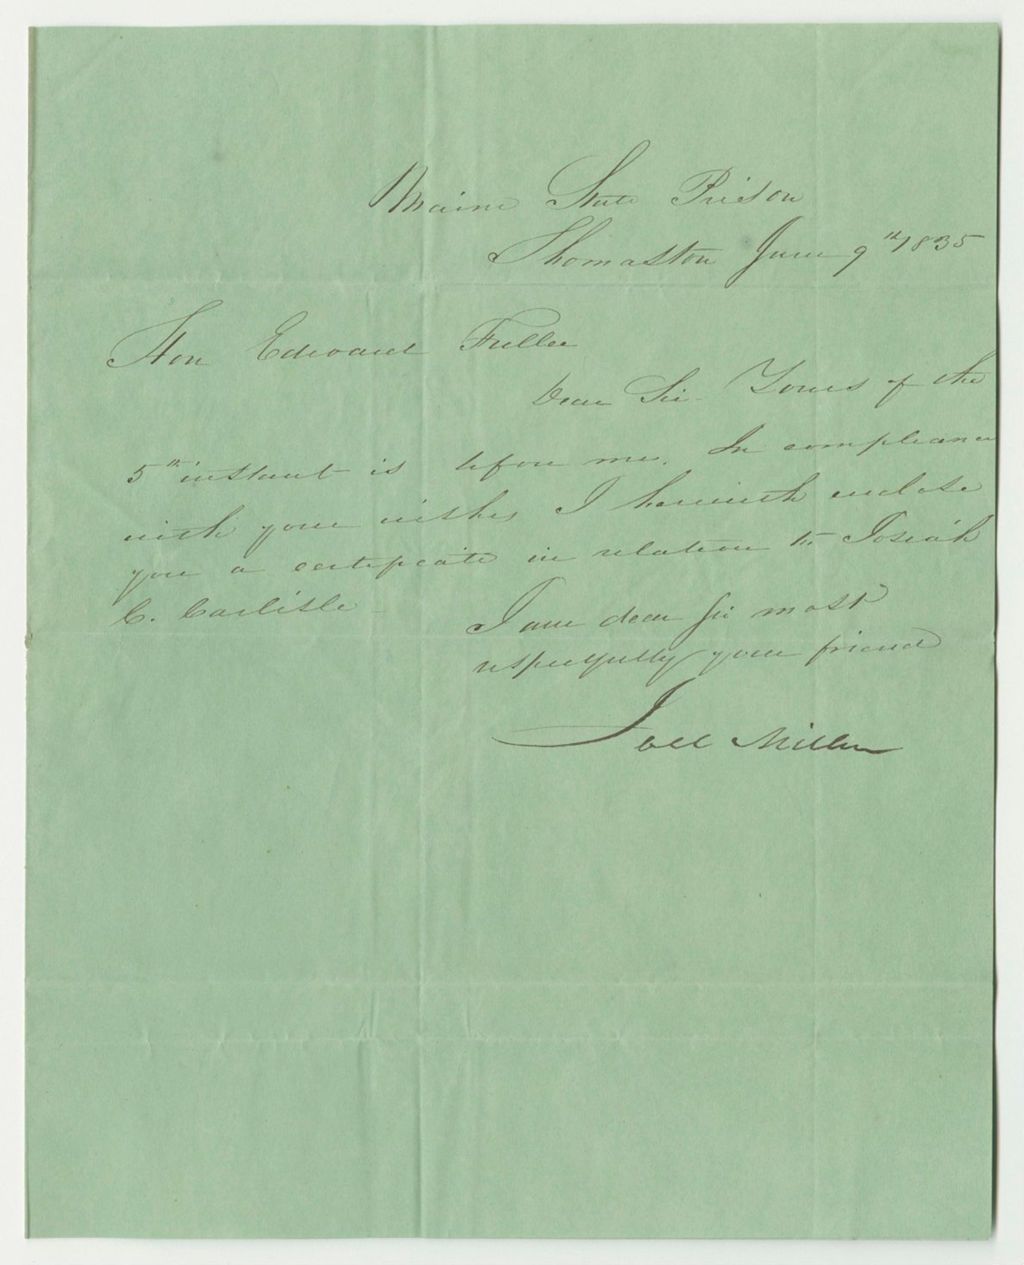 Maine State Prison
Thomaston June 9th 1835
Hon Edward Fuller
Dear Sir. Yours of the
5th instant is before me. In compliance
with your wishes I herewith enclose
you a certificate in relation to Josiah
C. Carlisle
I am dear Sir most
respectfully your friend
Joel Miller